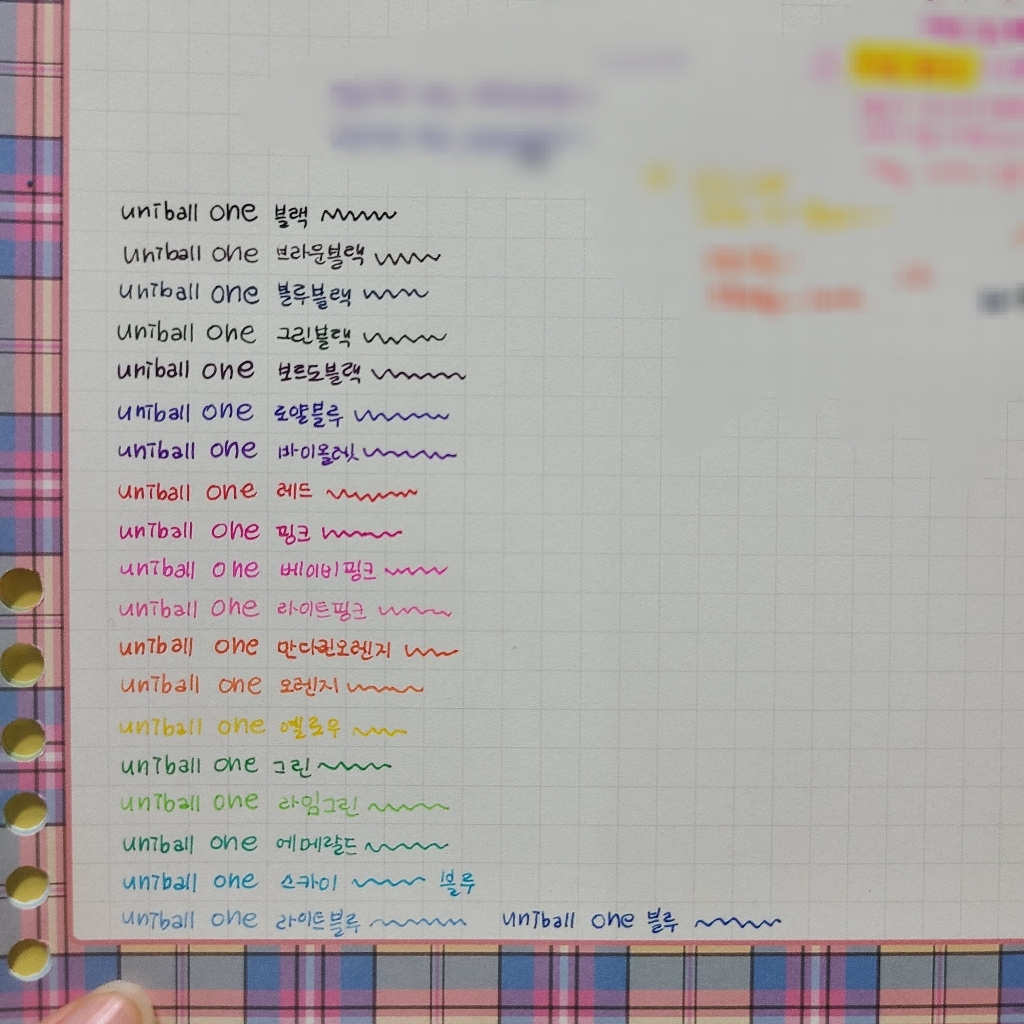 uniball one 블랙
uniball one 브라운블랙
uniball one 블루블랙
uniball one 그린블랙
uniball one 보르도블랙
uniball one 로얄블루
uniball one 바이올렛
uniball one 레드
uniball one 핑크
uniball one 베이비핑크
uniball one 라이트핑크
uniball one 만다린오렌지
uniball one 오렌지
uniball one 옐로우
uniball one 그린
uniball one 라임그린
uniball one 에메랄드
uniball one 스카이 블루
uniball one 라이트블루 uniball one 블루